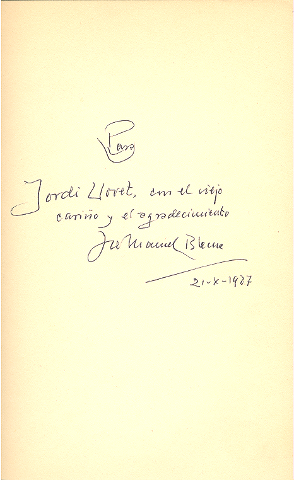 Para
Jordi Llovet, con el viejo
cariño y el agradecimiento
José Manuel Blecua
21-X-1987